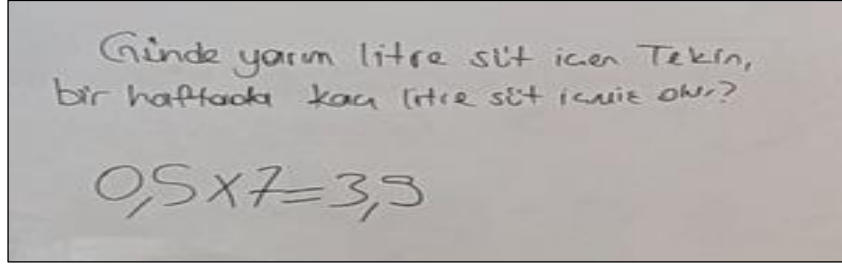 Günde yarım litre süt içen Tekin,
bir haftada kaç litre süt içmiş olur?
0,5x7=3,5